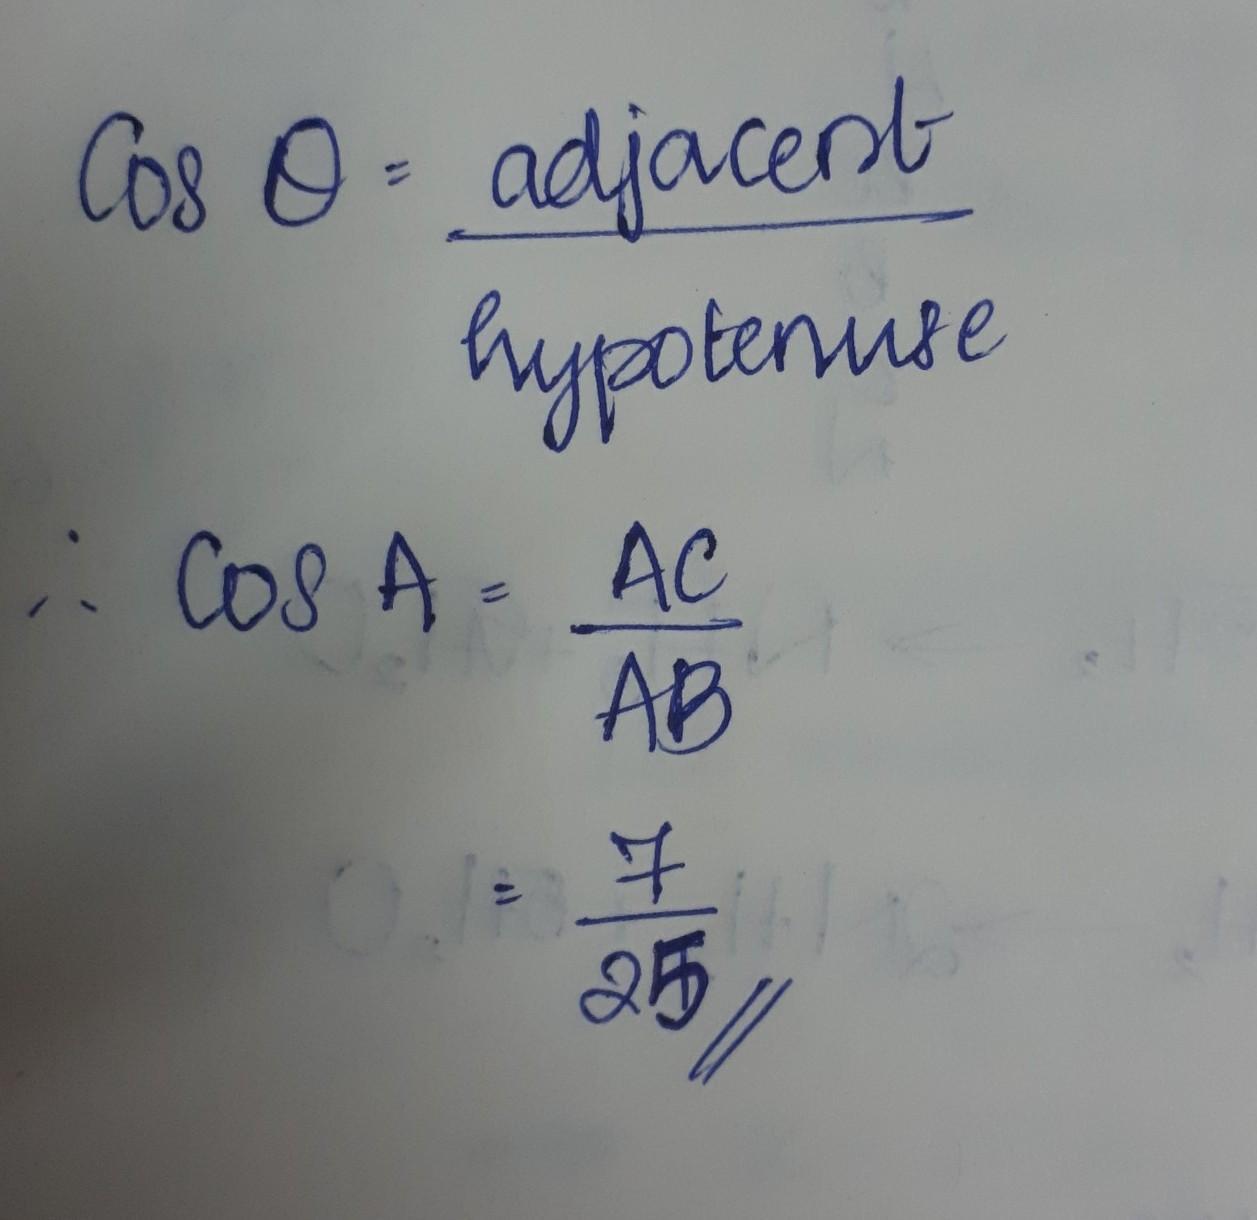 Cos θ = adjacent
hypotenuse
∴ Cos A = AC
AB
= 7
25 //